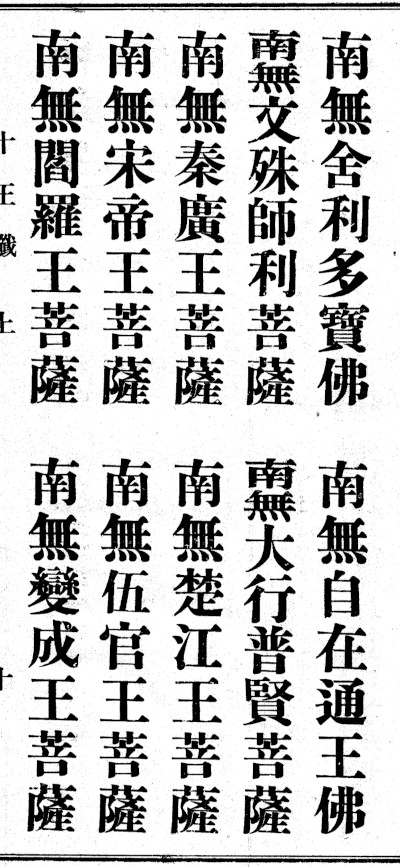 南無舍利多寶佛
南無自在通王佛
南無文殊師利菩薩
南無大行普賢菩薩
南無秦廣王菩薩
南無楚江王菩薩
南無宋帝王菩薩
南無伍官王菩薩
南無閻羅王菩薩
南無變成王菩薩
十王懺上
十